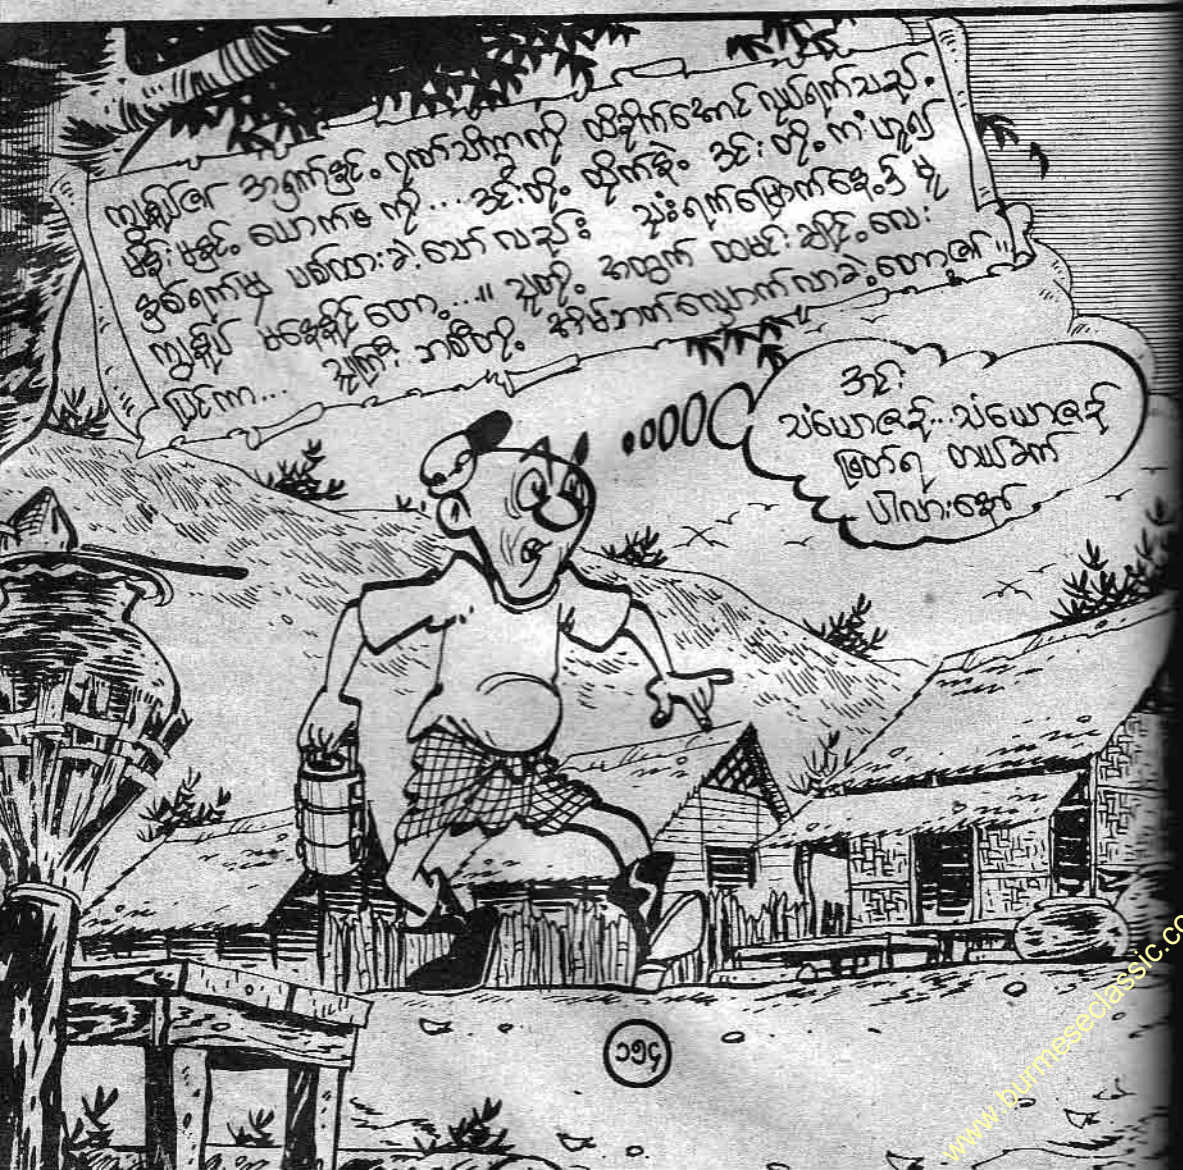 ကျွန်ုပ်၏ အရှက်နှင့် ဂုဏ်သိက္ခာကို ထိခိုက်အောင် လုပ်ရက်သည်.
မိန်းမနှင့် ယောက်ဖ ကို... ဒင်းတို့ ထိုက်နဲ့ ဒင်းတို့ ကံဟူ၍
နှစ်ရက်မျှ ပစ်ထားခဲ့သော်လည်း သုံးရက်မြောက်နေ့၌ မူ
ကျွန်ုပ် မနေနိုင်တော့...။ သူတို့ အတွက် ထမင်းချိုင့်လေး
ပြင်ကာ... သူကြီး ဘစီတို့ အိမ်ဘက်လျှောက်လာခဲ့တော့၏။
အင်း
သံယောဇဉ်...သံယောဇဉ်
ဖြတ်ရ တယ်ခက်
ပါလားနော်
၁၅၄
www.burmeseclassic.co